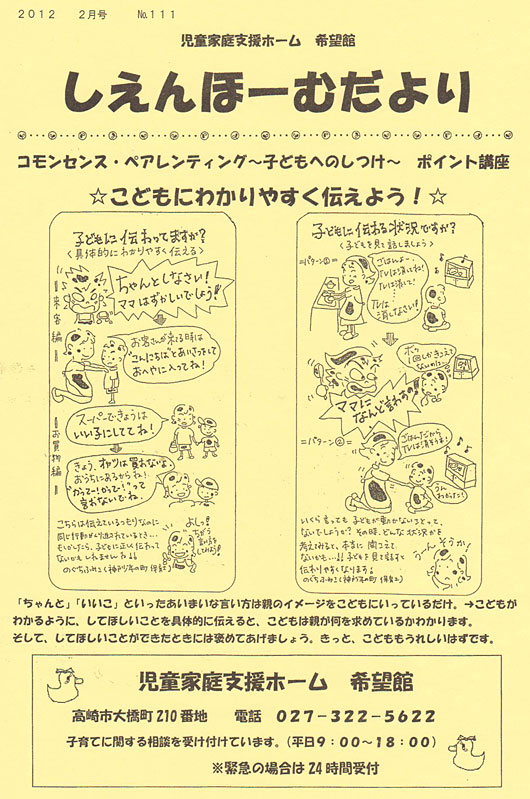 2012 2月号 No.111
児童家庭支援ホーム 希望館
しえんほーむだより
コモンセンス・ペアレンティング～子どもへのしつけ～ ポイント講座
☆こどもにわかりやすく伝えよう！☆
子どもに伝わってますか？
〈具体的にわかりやすく伝える〉
来客編
ちゃんとしなさい！
ママはずかしいでしょう！
お客さんが来る時は
"こんにちは"とあいさつをして
おへやに入ってね！
お買物編
スーパーできょうは
いい子にしててね！
きょう、オヤツは買わないよ。
おうちにあるからね！
"かってー！かってー！"って
言わないでね！
こちらは伝えているつもりなのに
同じ行動がくり返されているとき…
もしかしたら、子どもに正しく伝わって
ないかもしれませんね
よしっ！
ちがう
言い方を
してみよう！
子どもに伝わる状況ですか？
〈子どもを見て話しましょう〉
＝パターン①＝
ごはんよー、
TVは消してね！
TVは消して！
TVは
消しなさい！
ボク
1回しかきこえて
ないのに…
ママに
なんど言わすの！
＝パターン②＝
ごはんだから
TVは消そうね！
うん
わかった！
いくら言っても子どもが動かないことって、
ないでしょうか？その時、どんな状況かを
考えてみると、本当に聞こえて
ないかも…子どもを見て話すと
伝わりやすくなります。
うんそうか！
「ちゃんと」「いいこ」といったあいまいな言い方は親のイメージをこどもにいっているだけ。→こどもが
わかるように、してほしいことを具体的に伝えると、こどもは親が何を求めているかわかります。
そして、してほしいことができたときには褒めてあげましょう。きっと、こどももうれしいはずです。
児童家庭支援ホーム 希望館
高崎市大橋町210番地 電話 027－322－5622
子育てに関する相談を受け付けています。（平日9：00～18：00）
※緊急の場合は24時間受付